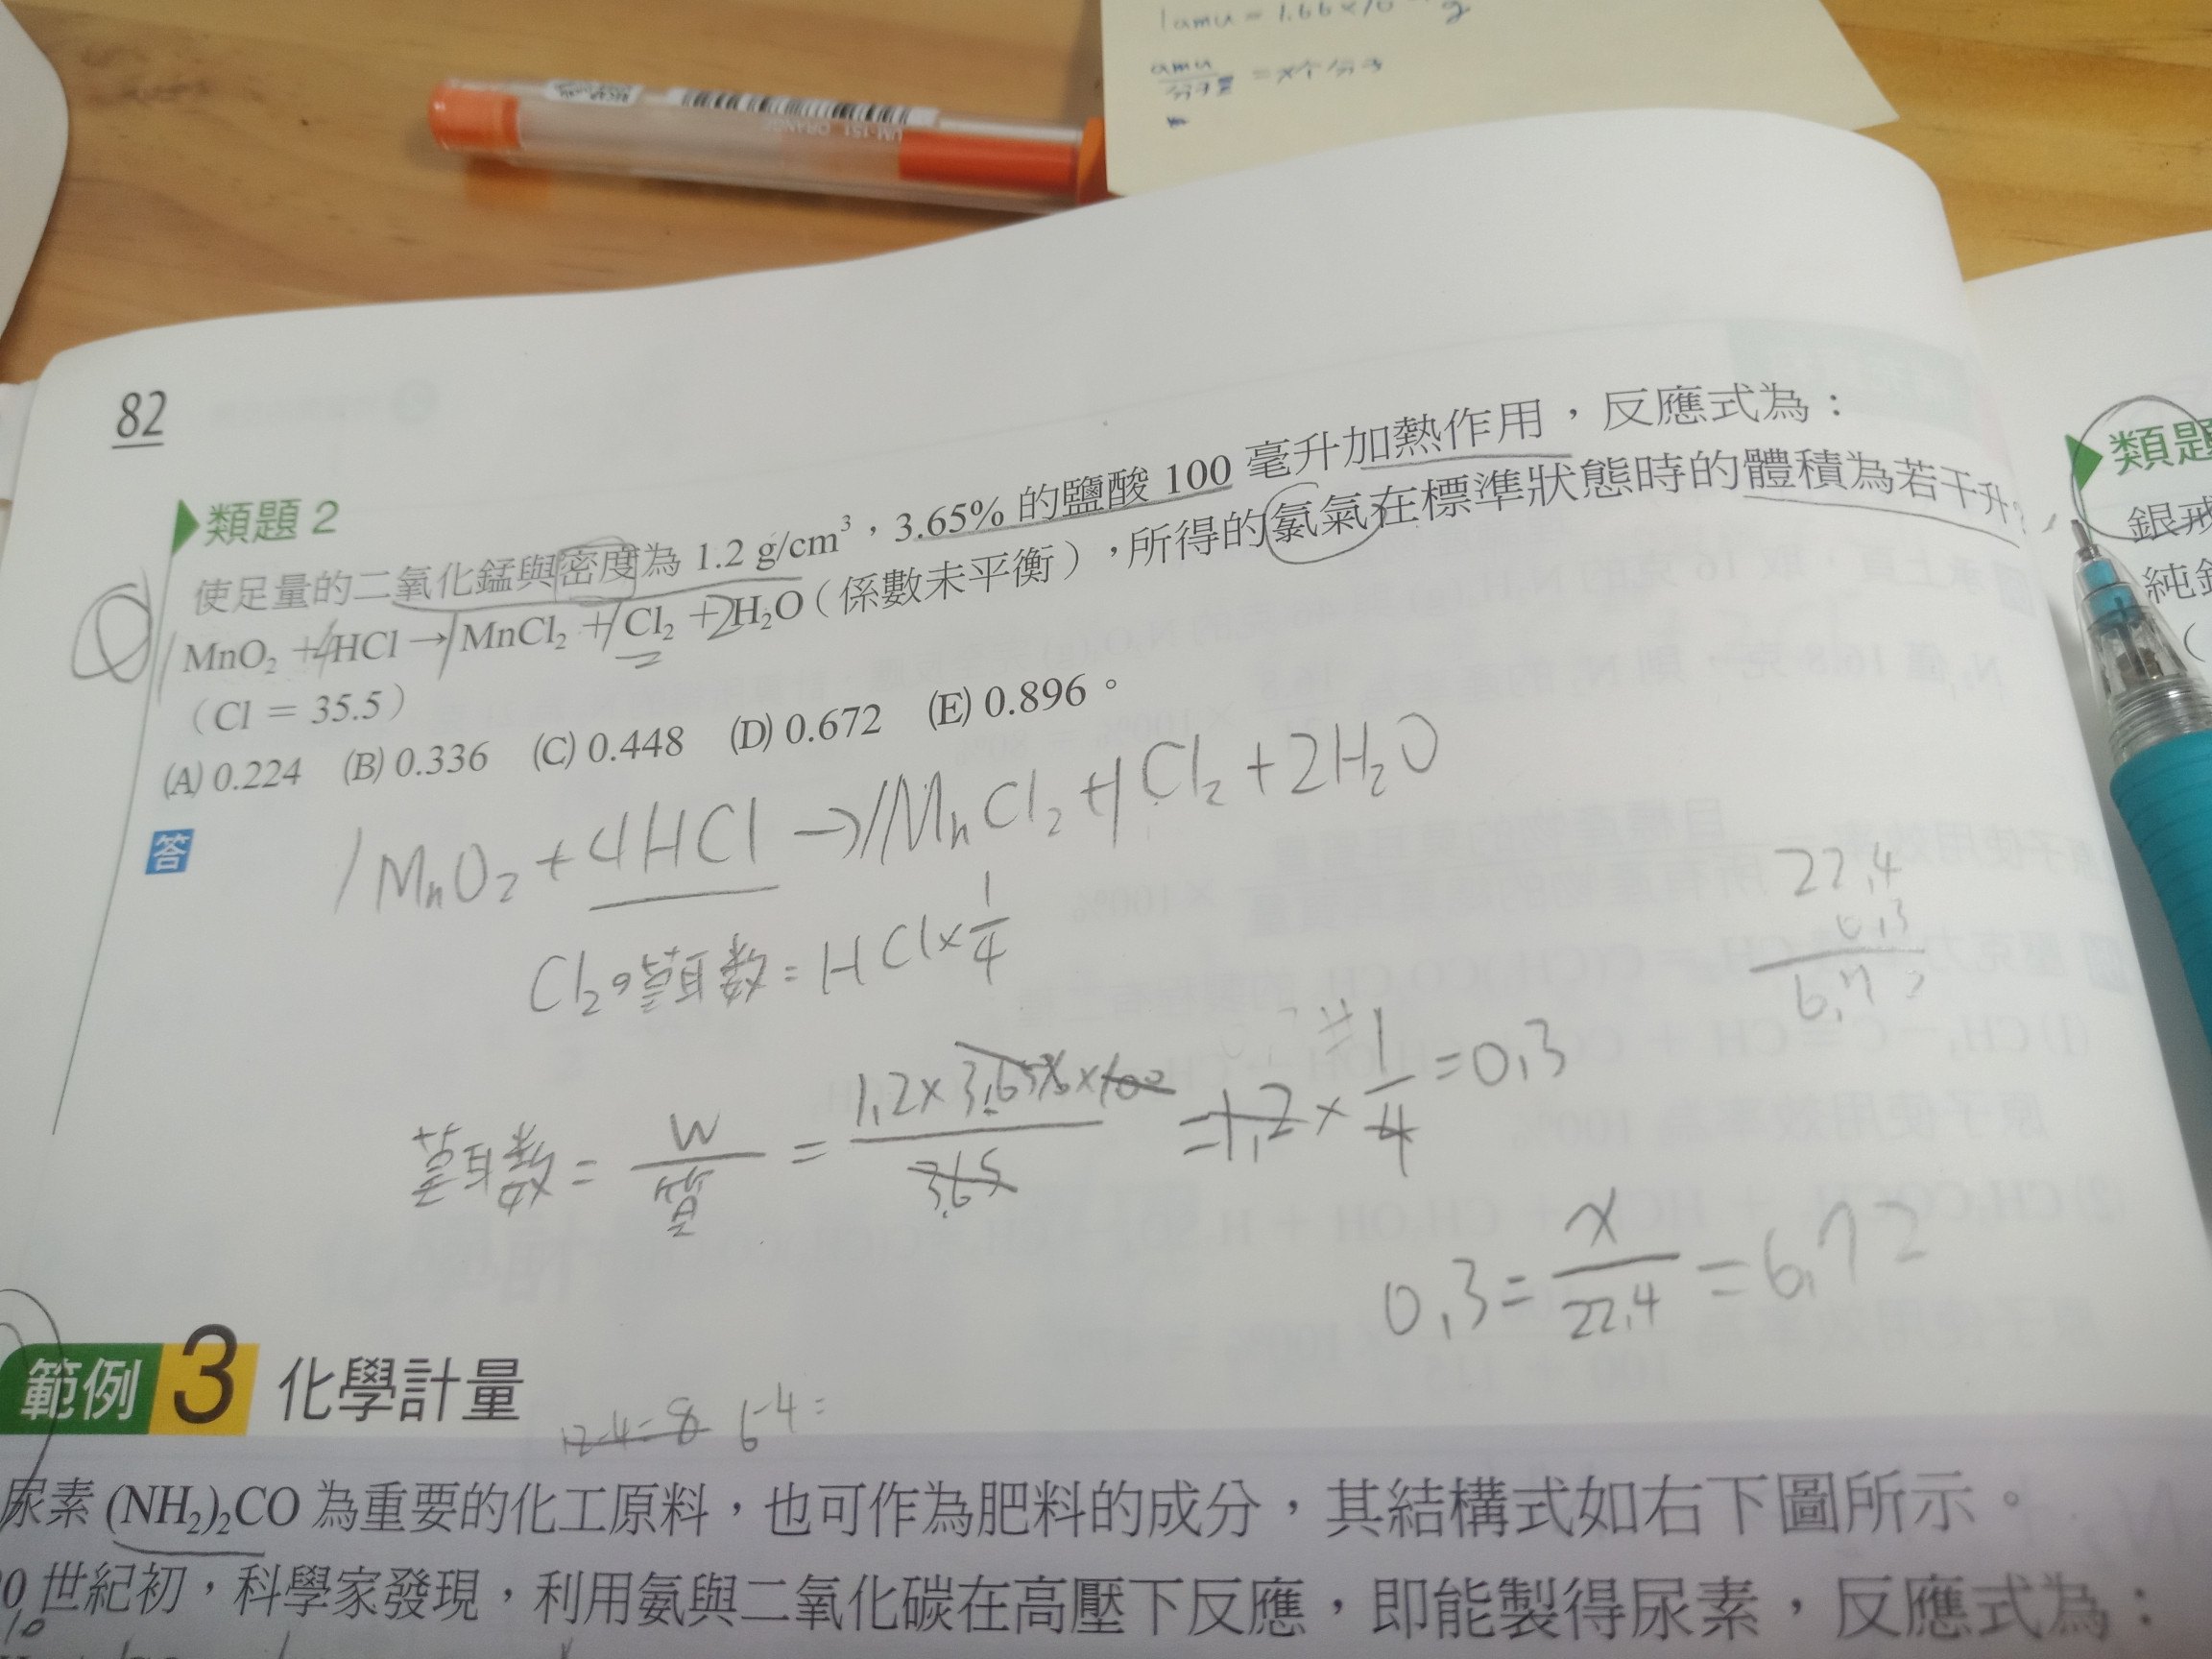 1amu = 1.66×10 g
amu/分子量 = x个分子
UM-151 ORANGE
82
類題2
使足量的二氧化錳與密度為 1.2 g/cm³，3.65% 的鹽酸 100 毫升加熱作用，反應式為：
MnO₂ + 4HCl → 1MnCl₂ + 1Cl₂ + 2H₂O（係數未平衡），所得的氯氣在標準狀態時的體積為若干升？
（Cl = 35.5）
(A) 0.224 (B) 0.336 (C) 0.448 (D) 0.672 (E) 0.896。
答
1MnO₂ + 4HCl → 1MnCl₂ + 1Cl₂ + 2H₂O
Cl₂の莫耳數 = HCl × 1/4
22.4
0.3
6.72
莫耳數 = W/質 = 1.2×3.65%×100/3.65 = 1.2 × 1/4 = 0.3
0.3 = x/22.4 = 6.72
範例 3 化學計量
12-4=8 6-4=
尿素 (NH₂)₂CO 為重要的化工原料，也可作為肥料的成分，其結構式如右下圖所示。
0 世紀初，科學家發現，利用氨與二氧化碳在高壓下反應，即能製得尿素，反應式為：
類題
銀戒
純銀
（